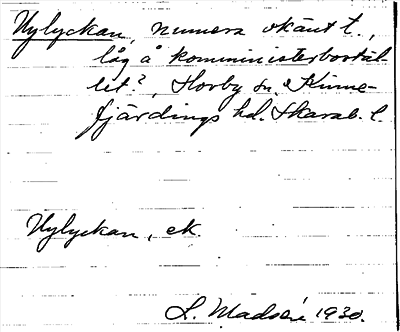 Nylyckan, numera okänt t.,
låg å komministerbostäl-
let?, Hovby sn. Kinne-
fjärdings hd. Skarab. l.
Nylyckan, ek.
L. Madsén 1930.